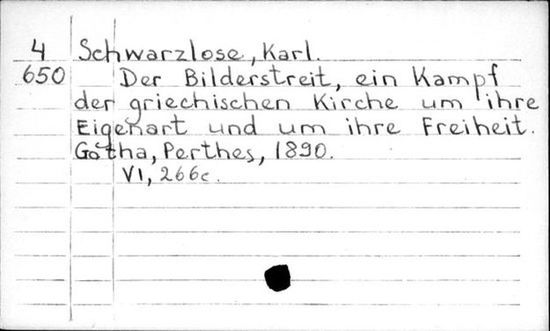 4 Schwarzlose, Karl.
650 Der Bilderstreit, ein Kampf
der griechischen Kirche um ihre
Eigenart und um ihre Freiheit.
Gotha, Perthes, 1890.
VI, 266c.